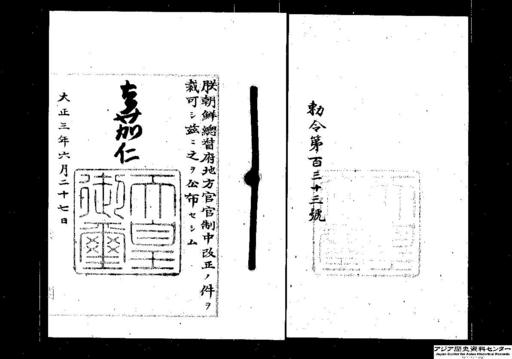 朕朝鮮總督府地方官官制中改正ノ件ヲ
裁可シ茲ニ之ヲ公布セシム
嘉仁
天皇御璽
大正三年六月二十七日
勅令第百三十三號
アジア歴史資料センター
Japan Center for Asian Historical Records